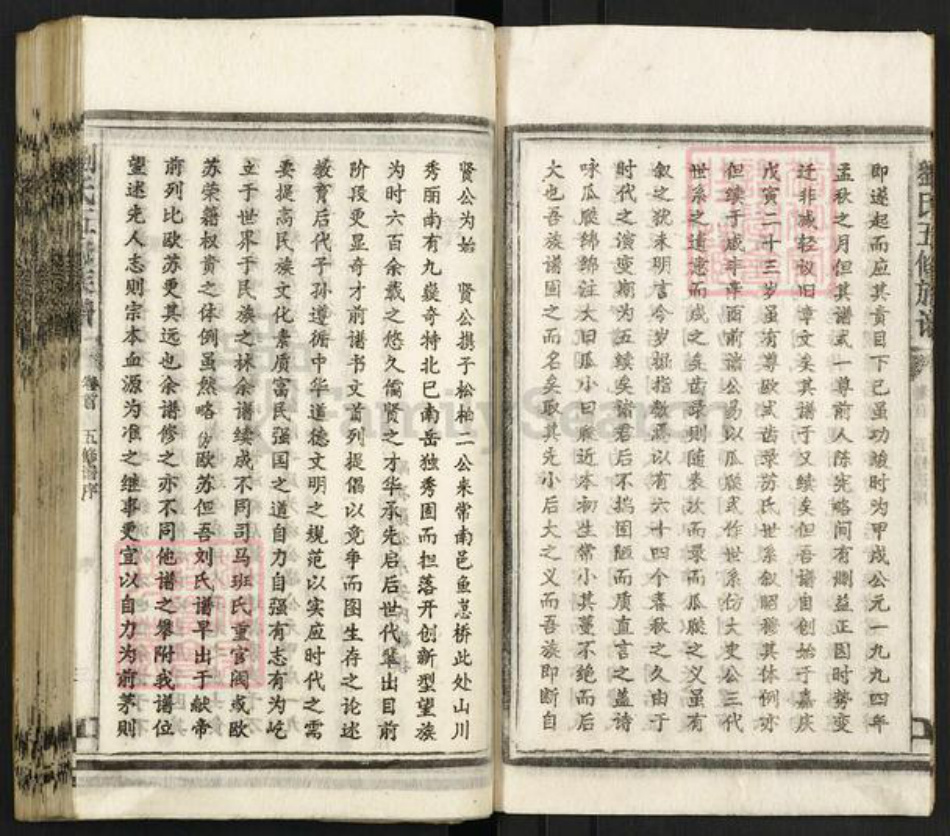 刘氏五修族谱
即遂起而应其责目下已虽功竣时为甲戍公元一九九四年
孟秋之月但其谱式一尊前人陈宪略间有删益正因时势变
迁非减轻议旧章文矣其谱于又续矣但吾谱自创始于嘉庆
戊寅二十三岁虽有尊欧式齿录苏氏世系叙昭穆其体例亦
但续于咸丰辛酉前谱公易以瓜瓞式作世系仿太史公三代
世系之遗意而成之矣齿录则随表次而录而瓜瓞之义虽有
叙之犹未明言今岁拫指数溯以有六十四个春秋之久由于
时代之演变期为五续矣谱君后不揣固陋而质直言之盖诗
咏瓜瓞绵绵注大曰瓜小曰瓞近本初生常小其蔓不绝而后
大也吾族谱因之而名矣取其先小后大之义而吾族即断自
贤公为始 贤公携子松柏二公来常南邑鱼崽桥此处山川
秀丽南有九嶷奇特北已南岳独秀因而担落开创新型望族
为时六百余载之悠久儒贤之才华承先启后世代辈出目前
阶段更显奇才前谱书文首列提倡以竞争而图生存之论述
教育后代子孙遵循中华道德文明之规范以实应时代之需
要提高民族文化素质富民强国之道自力自强有志有为屹
立于世界于民族之林余谱续成不同司马班氏重官阀或欧
苏荣籍权贵之体例虽然略仿欧苏但吾刘氏谱早出于献帝
前列比欧苏更其远也余谱修之亦不同他谱之攀附我谱位
望述先人志则宗本血源为准之继事更宜以自力为前茅则
卷首 五修谱序
FamilySearch